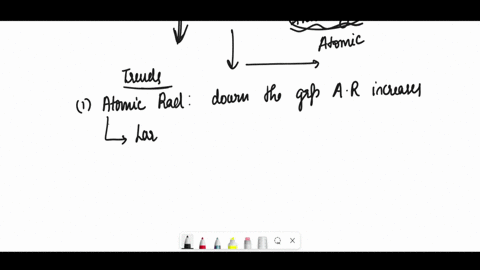 Atomic
Trends
(1) Atomic Rad: down the grps A.R increases
Lar